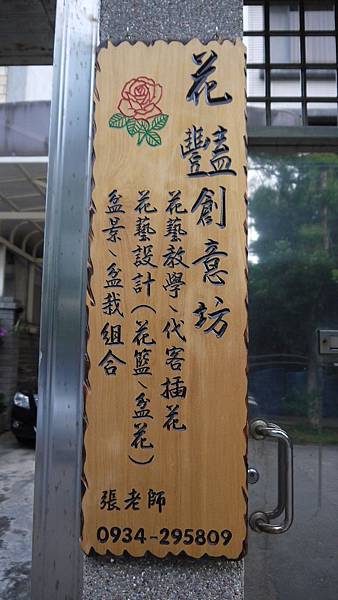 花豔創意坊
花藝教學、代客插花
花藝設計(花籃、盆花)
盆景、盆栽組合
張老師
0934-295809